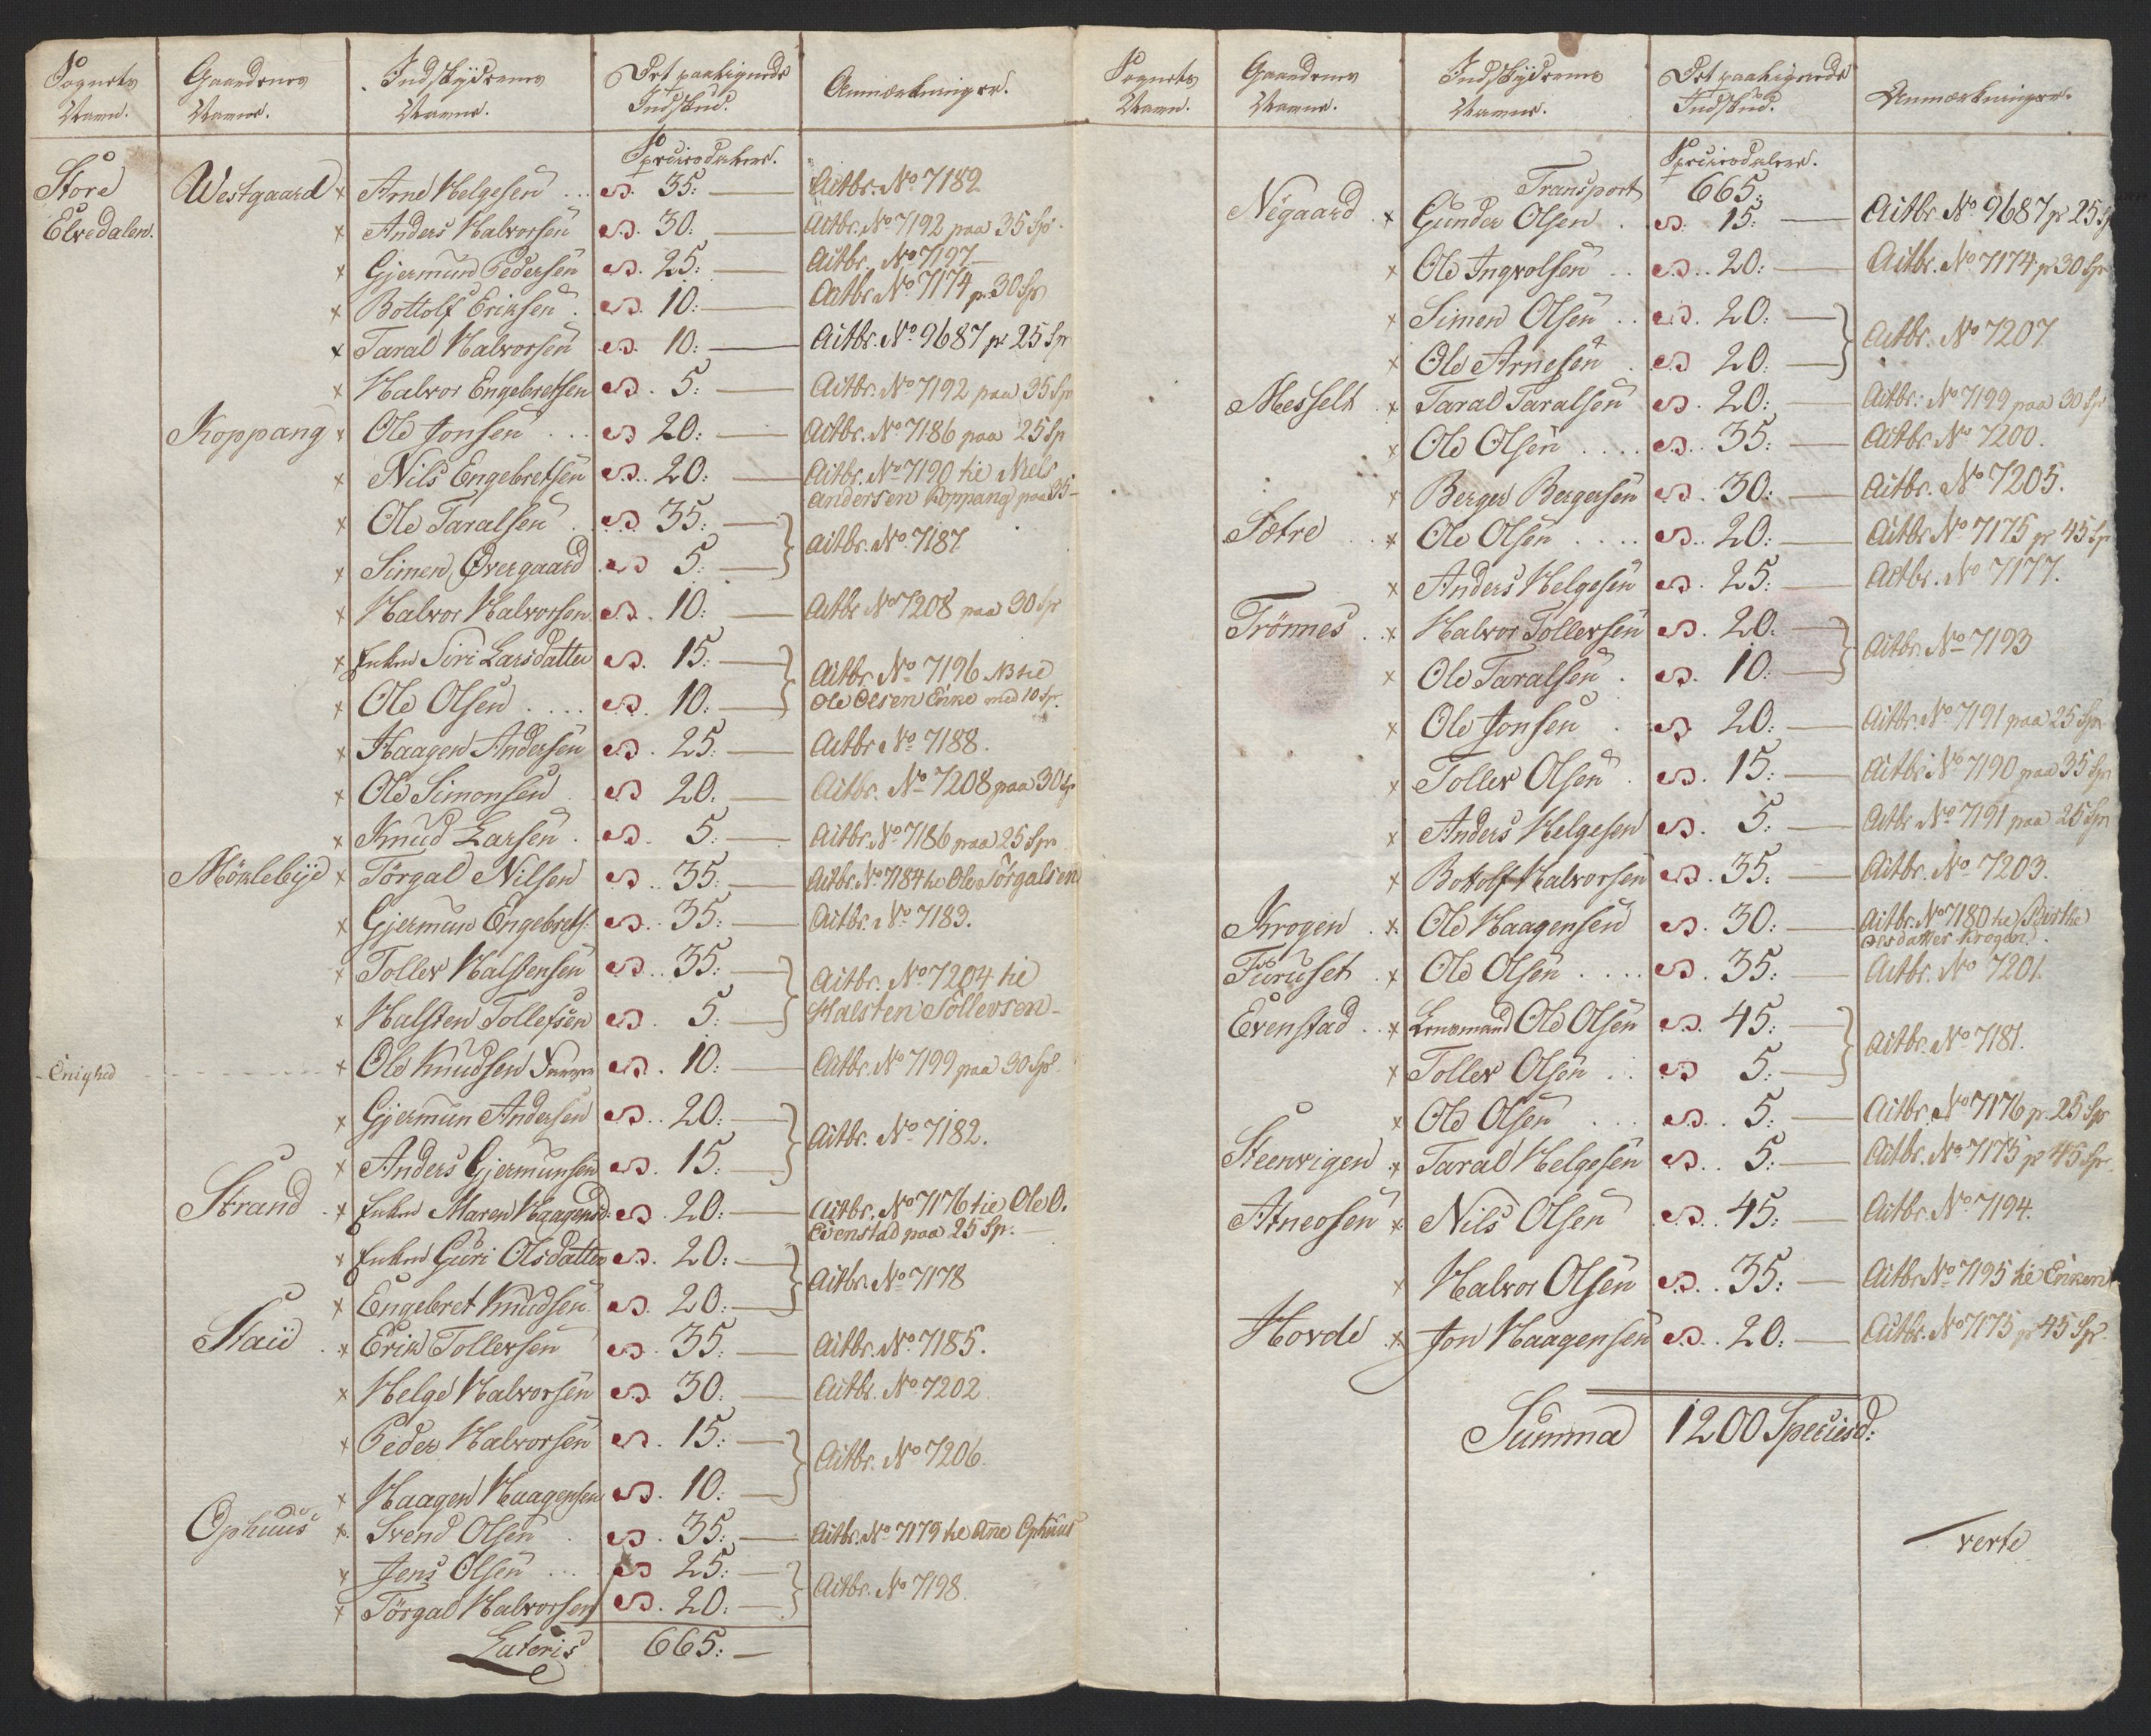 Sognets Navn. Gaardenes Navne. Indskydernes Navne. Det paalignede Indskud. Anmærkninger.
Speciesdalere.
Store Elvedalen. Westgaard x Arne Helgesen .. 35: — Actbr. No 7189
x Anders Halvorsen 30: — Actbr. No 7192 paa 35 Sp.
x Gjermund Pedersen 25: — Actbr. No 7197 —
x Bottolf Eriksen . 10: — Actbr. No 7174 p. 30 Sp
x Taral Halvorsen 10: — Actbr. No 9687 pr 25 Sp
x Halvor Engebretsen 5: — Actbr. No 7192 paa 35 Sp
Koppang x Ole Jonsen ... 20: — Actbr. No 7186 paa 25 Sp
x Nils Engebretsen 20: — Actbr. No 7190 til Niels
Andersen Koppang paa 35 —
x Ole Taralsen . 35: — } Actbr. No 7187
x Simen Øvergaard 5: — }
x Halvor Halvorsen 10: — Actbr No 7208 paa 30 Sp
x Enken Siri Larsdatter 15: — } Actbr. No 7196 NB til
x Ole Olsen .... 10: — } Ole Olsen Enke med 10 Sp.
x Haagen Andersen 25: — Actbr No 7188.
x Ole Simonsen 20. — Actbr. No 7208 paa 30 Sp
x Knud Larsen . 5: — Actbr. No 7186 paa 25 Sp
Möklebye x Törgal Nilsen 35: — Actbr. No 7184 til Ole Törgalsen
x Gjermun Engebrets: 35: — Actbr. No 7183.
x Toller Halstensen 35: — } Actbr. No 7204 til
x Halsten Tollefsen 5: — } Halsten Tollevsen —
- Enighed - - - - - x Ole Knudsen 10: — Actbr. No 7199 paa 30 Sp.
x Gjermun Andersen 20: — } Actbr. No 7182.
x Anders Gjermunsen 15: — }
Strand . x Enken Maren Haagensd: 20: — Actbr. No 7176 til Ole O.
Evenstad paa 25 Sp. —
x Enken Guri Olsdatter 20: — } Actbr. No 7178
x Engebret Knudsen 20: — }
Staii . x Erik Tollersen 35: — Actbr. No 7185.
x Helge Halvorsen 30: — Actbr. No 7202
x Peder Halvorsen 15: — } Actbr. No 7206.
x Haagen Haagensen 10: — }
Ophuus x Svend Olsen . 35: — Actbr. No 7179 til Ane Ophuus
x Jens Olsen ... 25: — } Actbr. No 7198
x Törgal Halvorsen 20: — }
Lateris 665: —
Sognets Navn. Gaardenes Navne. Indskydernes Navne. Det paalignede Indskud. Anmærkninger.
Speciesdalere.
Transport 665:
Negaard . x Gunder Olsen . 15: — Actbr. No 9687 pr 25 Sp
x Ole Ingvolsen .. 20: — Actbr. No 7174 p 30 Sp
x Simen Olsen .. 20: — } Actbr. No 7207
x Ole Arnesen . 20: — }
Messelt . x Taral Taralsen 20: — Actbr. No 7199 paa 30 Sp
x Ole Olsen .... 35: — Actbr. No 7200.
x Berger Bergersen 30: — Actbr. No 7205.
Sætre .. x Ole Olsen .... 20: — Actbr No 7175 pr 45 Sp
x Anders Helgesen 25: — Actbr. No 7177.
Trönnes . x Halvor Tollersen 20: — } Actbr. No 7193
x Ole Taralsen . 10: — }
x Ole Jonsen . 20: — Actbr. No 7191 paa 25 Sp
x Toller Olsen . 15: — Actbr No 7190 paa 35 Sp
x Anders Helgesen 5: — Actbr No 7191 paa 25 Sp
x Bottolf Halvorsen 35: — Actbr. No 7203.
Krogen . x Ole Haagensen 30: — Actbr. No 7180 til Birthe
Olsdatter Krogen.
Furuset . x Ole Olsen .... 35: — Actbr. No 7201.
Evenstad . x Lensmand Ole Olsen 45: — } Actbr. No 7181.
x Toller Olsen .. 5: — }
x Ole Olsen ... 5: — Actbr. No 7176 p. 25 Sp
Steenvigen x Taral Helgesen 5: — Actbr. No 7175 pr 45 Sp.
Atneosen x Nils Olsen 45: — Actbr. No 7194.
x Halvor Olsen 35: — Actbr No 7195 til Enken
Hovde . x Jon Haagensen 20: — Actbr. No 7175 pr 45 Sp
Summa 1200 Speciesd:
verte